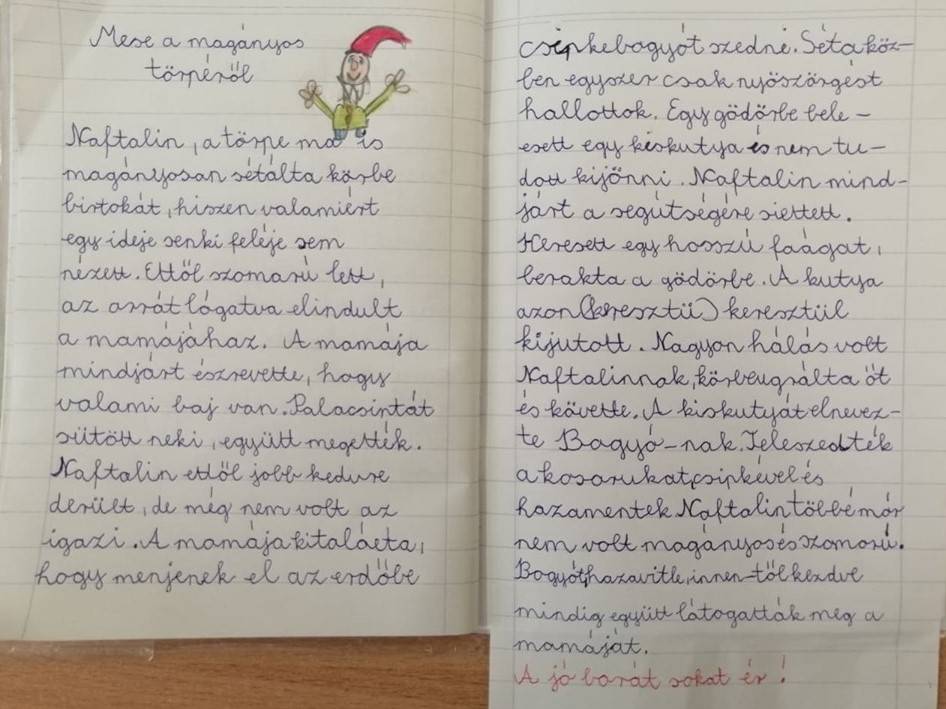 Mese a magányos
törpéről
Naftalin, a törpe ma is
magányosan sétálta körbe
birtokát, hiszen valamiért
egy ideje senki feléje sem
nézett. Ettől szomarú lett,
az orrát lógatva elindult
a mamájához. A mamája
mindjárt észrevette, hogy
valami baj van. Palacsintát
sütött neki, együtt megették.
Naftalin ettől jobb kedvre
derült, de még nem volt az
igazi. A mamája kitalálta,
hogy menjenek el az erdőbe
csipkebogyót szedni. Séta köz-
ben egyszer csak nyöszörgést
hallottok. Egy gödörbe bele-
esett egy kiskutya és nem tu-
dott kijönni. Naftalin mind-
járt a segítségére sietett.
Keresett egy hosszú faágat,
berakta a gödörbe. A kutya
azon (keresztü) keresztül
kijutott. Nagyon hálás volt
Naftalinnak, körbeugrálta őt
és követte. A kiskutyát elnevez-
te Bogyó-nak. Teleszedték
a kosarukat csipkével és
hazamentek Naftalin többé már
nem volt magányos és szomorú.
Bogyót hazavitte, innen-től kezdve
mindig együtt látogatták meg a
mamáját.
A jó barát sokat ér!